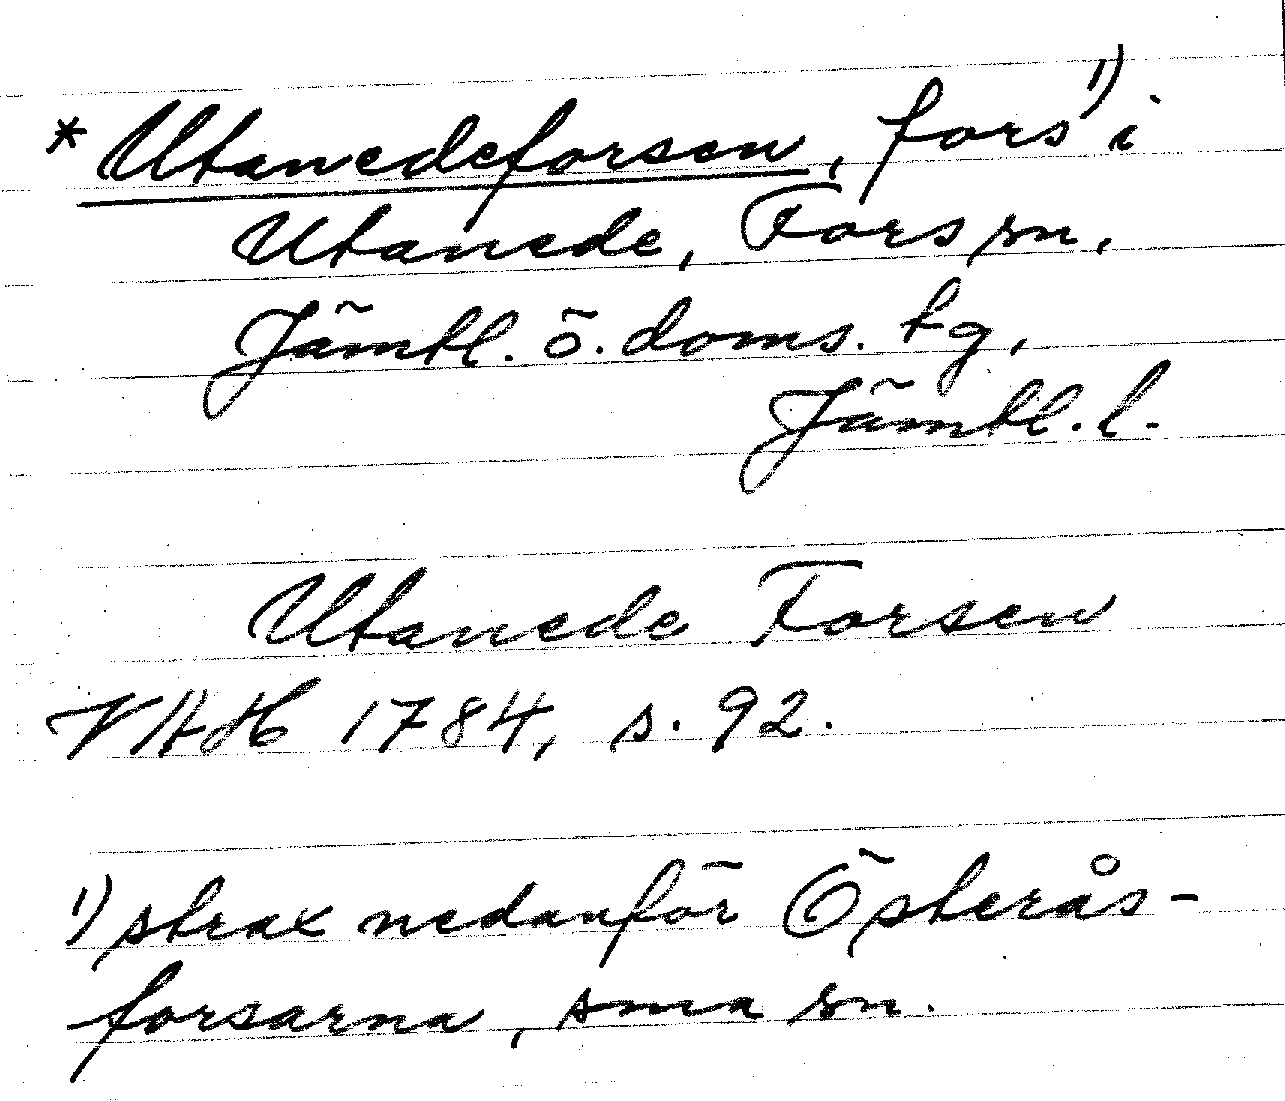 *Utanedeforsen, fors¹⁾ i
Utanede, Fors sn,
Jämtl. ö. doms. tg,
Jämtl. l.
Utanede Forsen
VAH 1784, s. 92.
1) strax nedanför Österås-
forsarna, sma sn.